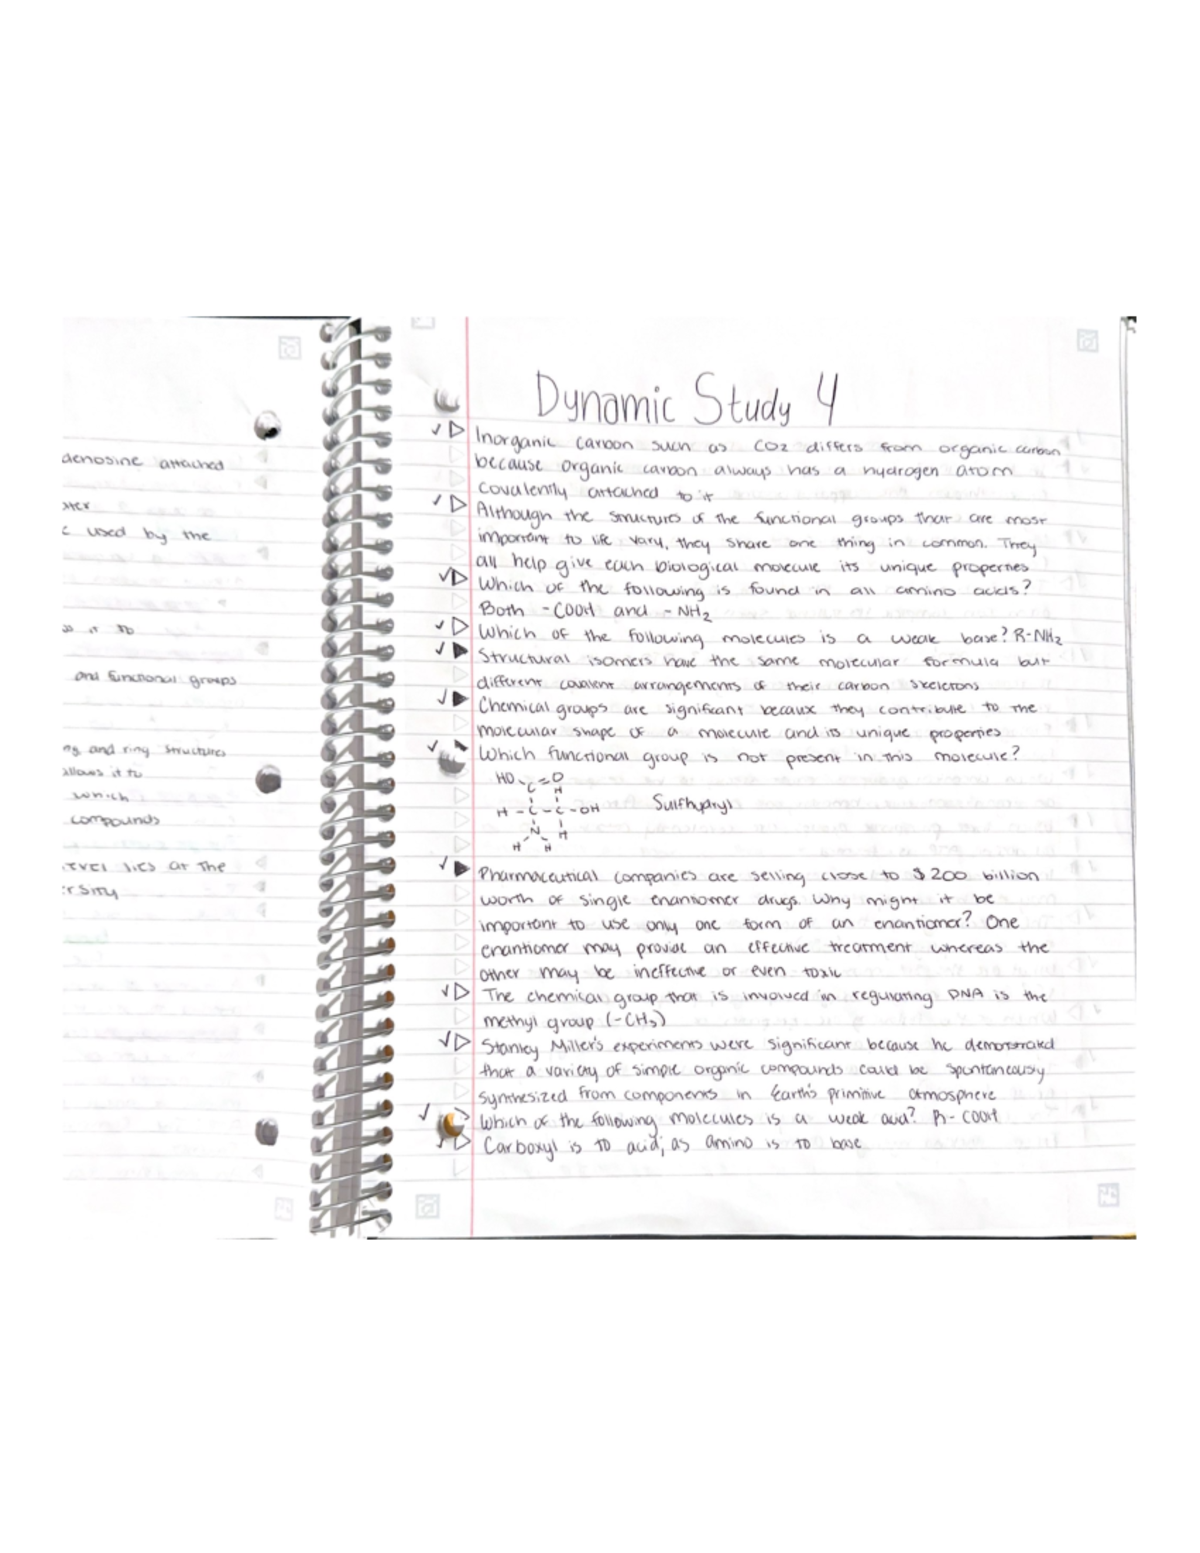 denosine attached
used by the
as it to
and functional groups
and ring structures
allows it to
which
compounds
level lies at the
Dynamic Study 4
Inorganic carbon such as CO2 differs from organic carbon
because organic carbon always has a hydrogen atom
covalently attached to it
Although the structures of the functional groups that are most
important to life vary, they share one thing in common. They
all help give each biological molecule its unique properties
Which of the following is found in all amino acids?
Both -COOH and -NH2
Which of the following molecules is a weak base? R-NH2
Structural isomers have the same molecular formula but
different covalent arrangements of their carbon skeletons
Chemical groups are significant because they contribute to the
molecular shape of a molecule and its unique properties
Which functional group is not present in this molecule?
HO C=O
H
H-C-C-OH Sulfhydryl
N H
H H
Pharmaceutical companies are selling close to $200 billion
worth of single enantiomer drugs. Why might it be
important to use only one form of an enantiomer? One
enantiomer may provide an effective treatment whereas the
other may be ineffective or even toxic
The chemical group that is involved in regulating DNA is the
methyl group (-CH3)
Stanley Miller's experiments were significant because he demonstrated
that a variety of simple organic compounds could be spontaneously
synthesized from components in Earth's primitive atmosphere
Which of the following molecules is a weak acid? R-COOH
Carboxyl is to acid; as amino is to base